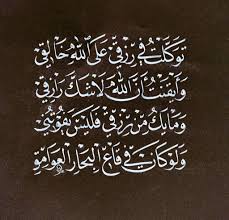 توكلت في رزقي على الله خالقي
وأيقنت أن الله لا شك رازقي
وما يك من رزقي فليس يفوتني
ولو كان في قاع البحار العوامق